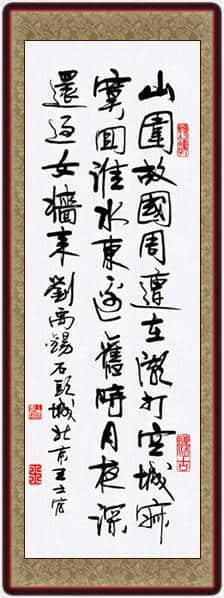 山圍故國周遭在潮打空城寂
寞回淮水東邊舊時月夜深
還過女墻來劉禹錫石頭城北京王